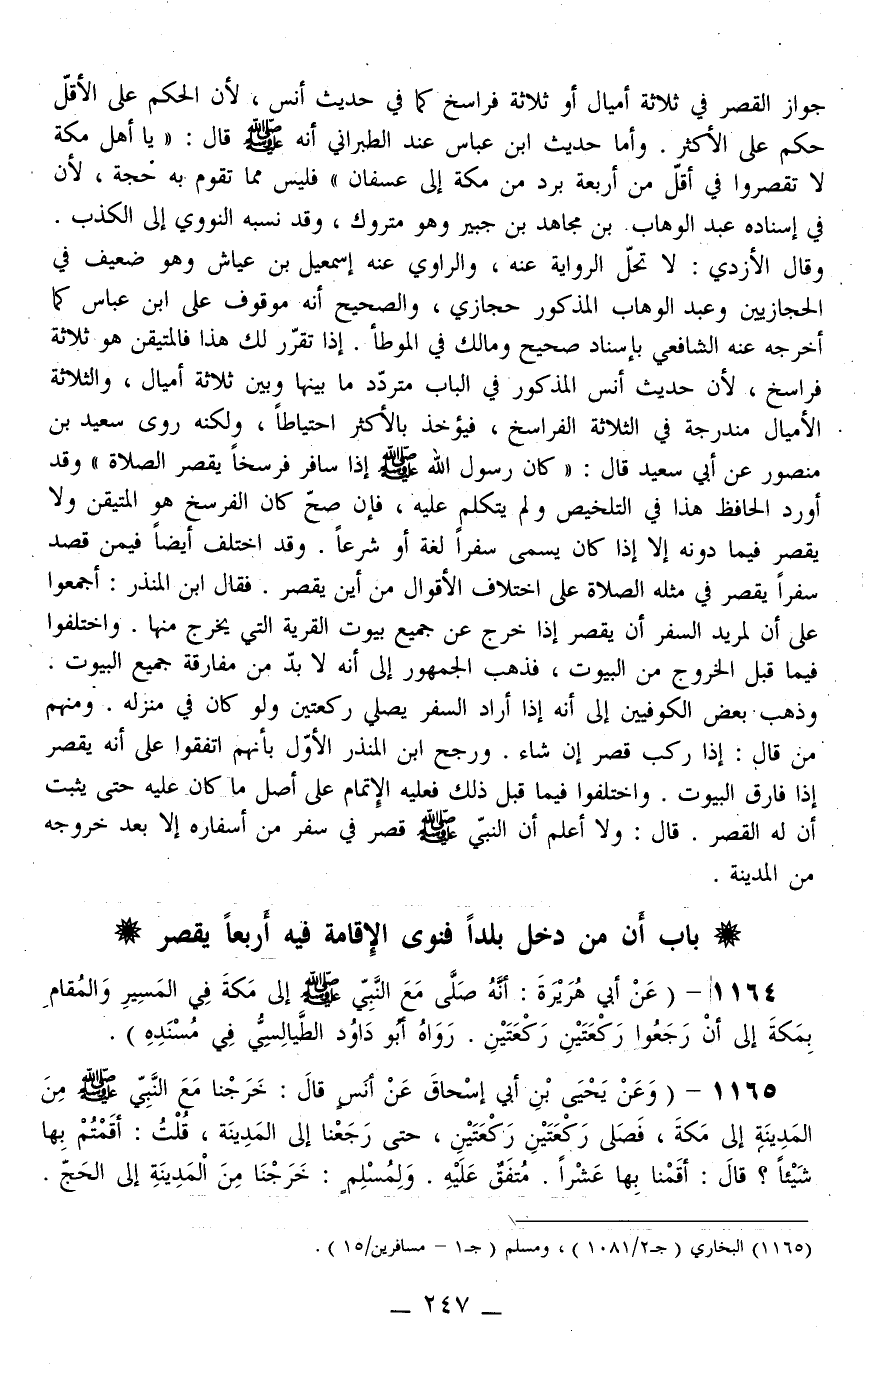 جواز القصر في ثلاثة أميال أو ثلاثة فراسخ كما في حديث أنس ، لأن الحكم على الأقلّ
حكم على الأكثر . وأما حديث ابن عباس عند الطبراني أنه ﷺ قال : « يا أهل مكة
لا تقصروا في أقلّ من أربعة برد من مكة إلى عسفان » فليس مما تقوم به حجة ، لأن
في إسناده عبد الوهاب بن مجاهد بن جبير وهو متروك ، وقد نسبه النووي إلى الكذب .
وقال الأزدي : لا تحلّ الرواية عنه ، والراوي عنه إسمعيل بن عياش وهو ضعيف في
الحجازيين وعبد الوهاب المذكور حجازي ، والصحيح أنه موقوف على ابن عباس كما
أخرجه عنه الشافعي بإسناد صحيح ومالك في الموطأ . إذا تقرّر لك هذا فالمتيقن هو ثلاثة
فراسخ ، لأن حديث أنس المذكور في الباب متردّد ما بينها وبين ثلاثة أميال ، والثلاثة
الأميال مندرجة في الثلاثة الفراسخ ، فيؤخذ بالأكثر احتياطاً ، ولكنه روى سعيد بن
منصور عن أبي سعيد قال : « كان رسول الله ﷺ إذا سافر فرسخاً يقصر الصلاة » وقد
أورد الحافظ هذا في التلخيص ولم يتكلم عليه ، فإن صحّ كان الفرسخ هو المتيقن ولا
يقصر فيما دونه إلا إذا كان يسمى سفراً لغة أو شرعاً . وقد اختلف أيضاً فيمن قصد
سفراً يقصر في مثله الصلاة على اختلاف الأقوال من أين يقصر . فقال ابن المنذر : أجمعوا
على أن لمريد السفر أن يقصر إذا خرج عن جميع بيوت القرية التي يخرج منها . واختلفوا
فيما قبل الخروج من البيوت ، فذهب الجمهور إلى أنه لا بدّ من مفارقة جميع البيوت .
وذهب بعض الكوفيين إلى أنه إذا أراد السفر يصلي ركعتين ولو كان في منزله . ومنهم
من قال : إذا ركب قصر إن شاء . ورجح ابن المنذر الأوّل بأنهم اتفقوا على أنه يقصر
إذا فارق البيوت . واختلفوا فيما قبل ذلك فعليه الإتمام على أصل ما كان عليه حتى يثبت
أن له القصر . قال : ولا أعلم أن النبيّ ﷺ قصر في سفر من أسفاره إلا بعد خروجه
من المدينة .
✹ باب أَن من دخل بلداً فنوى الإِقامة فيه أَربعاً يقصر ✹
١١٦٤ – ( عَنْ أبي هُرَيْرَةَ : أنَّهُ صَلَّى مَعَ النَّبِيّ ﷺ إلى مَكةَ فِي المَسِيرِ وَالمُقامِ
بِمَكةَ إلى أنْ رَجَعُوا رَكْعَتَيْنِ رَكْعَتَيْنِ . رَوَاهُ أبُو دَاوُد الطَّيالِسِيُّ فِي مُسْنَدِهِ ) .
١١٦٥ – ( وَعَنْ يَحْيَى بْنِ أبي إسْحاقَ عَنْ أنَسٍ قالَ : خَرَجْنا مَعَ النَّبِيّ ﷺ مِنَ
المَدِينَةِ إلى مَكةَ ، فَصَلى رَكْعَتَيْنِ رَكْعَتَيْنِ ، حتى رَجَعْنا إلى المَدِينَة ، قُلْتُ : أقَمْتُمْ بِها
شَيْئاً ؟ قالَ : أقَمْنا بِها عَشْراً . مُتفَقٌ عَلَيْهِ . وَلِمُسْلِمٍ : خَرَجْنَا مِنَ الْمَدِينَةِ إلى الحَجّ .
(١١٦٥) البخاري ( جـ٢/ ١٠٨١ ) ، ومسلم ( جـ١ – مسافرين/١٥ ) .
— ٢٤٧ —